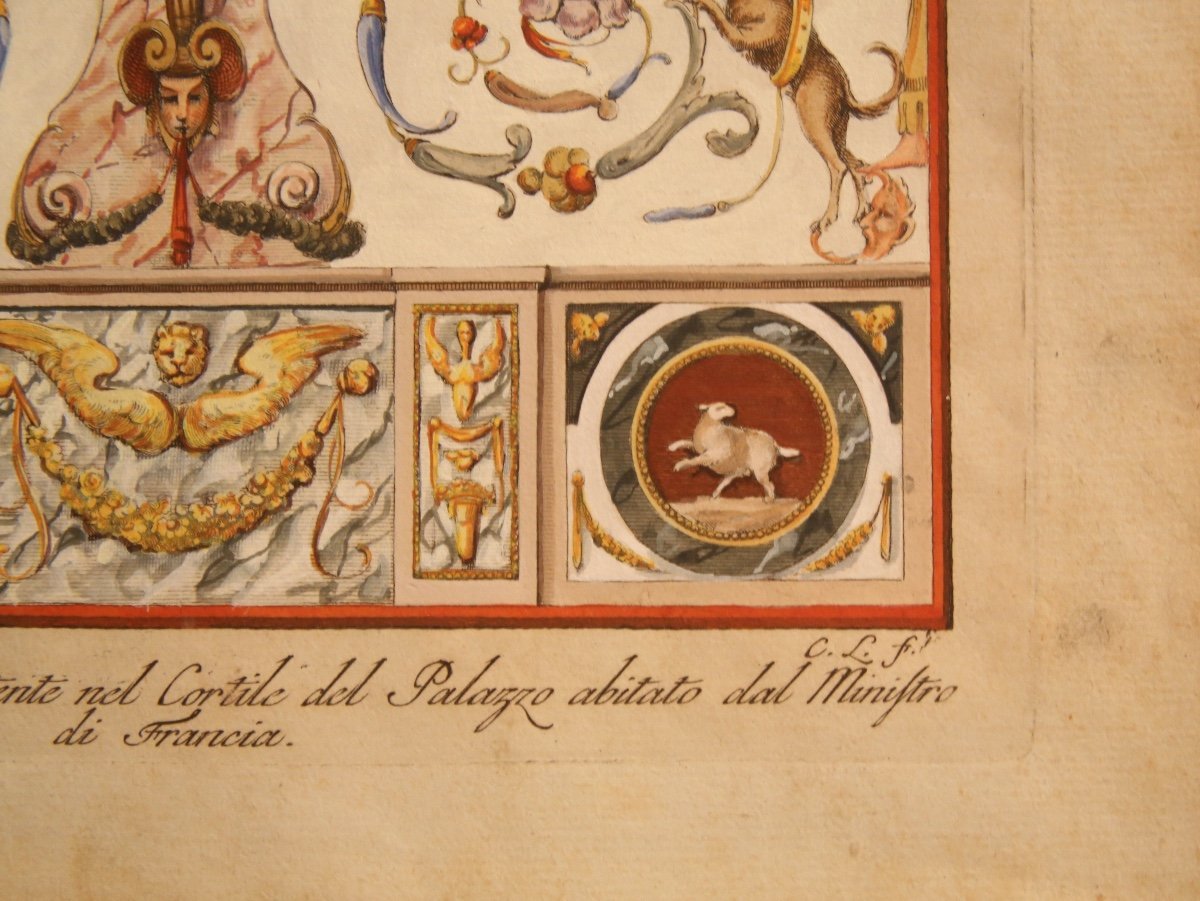 C. L. f.t
ente nel Cortile del Palazzo abitato dal Miniſtro
di Francia.